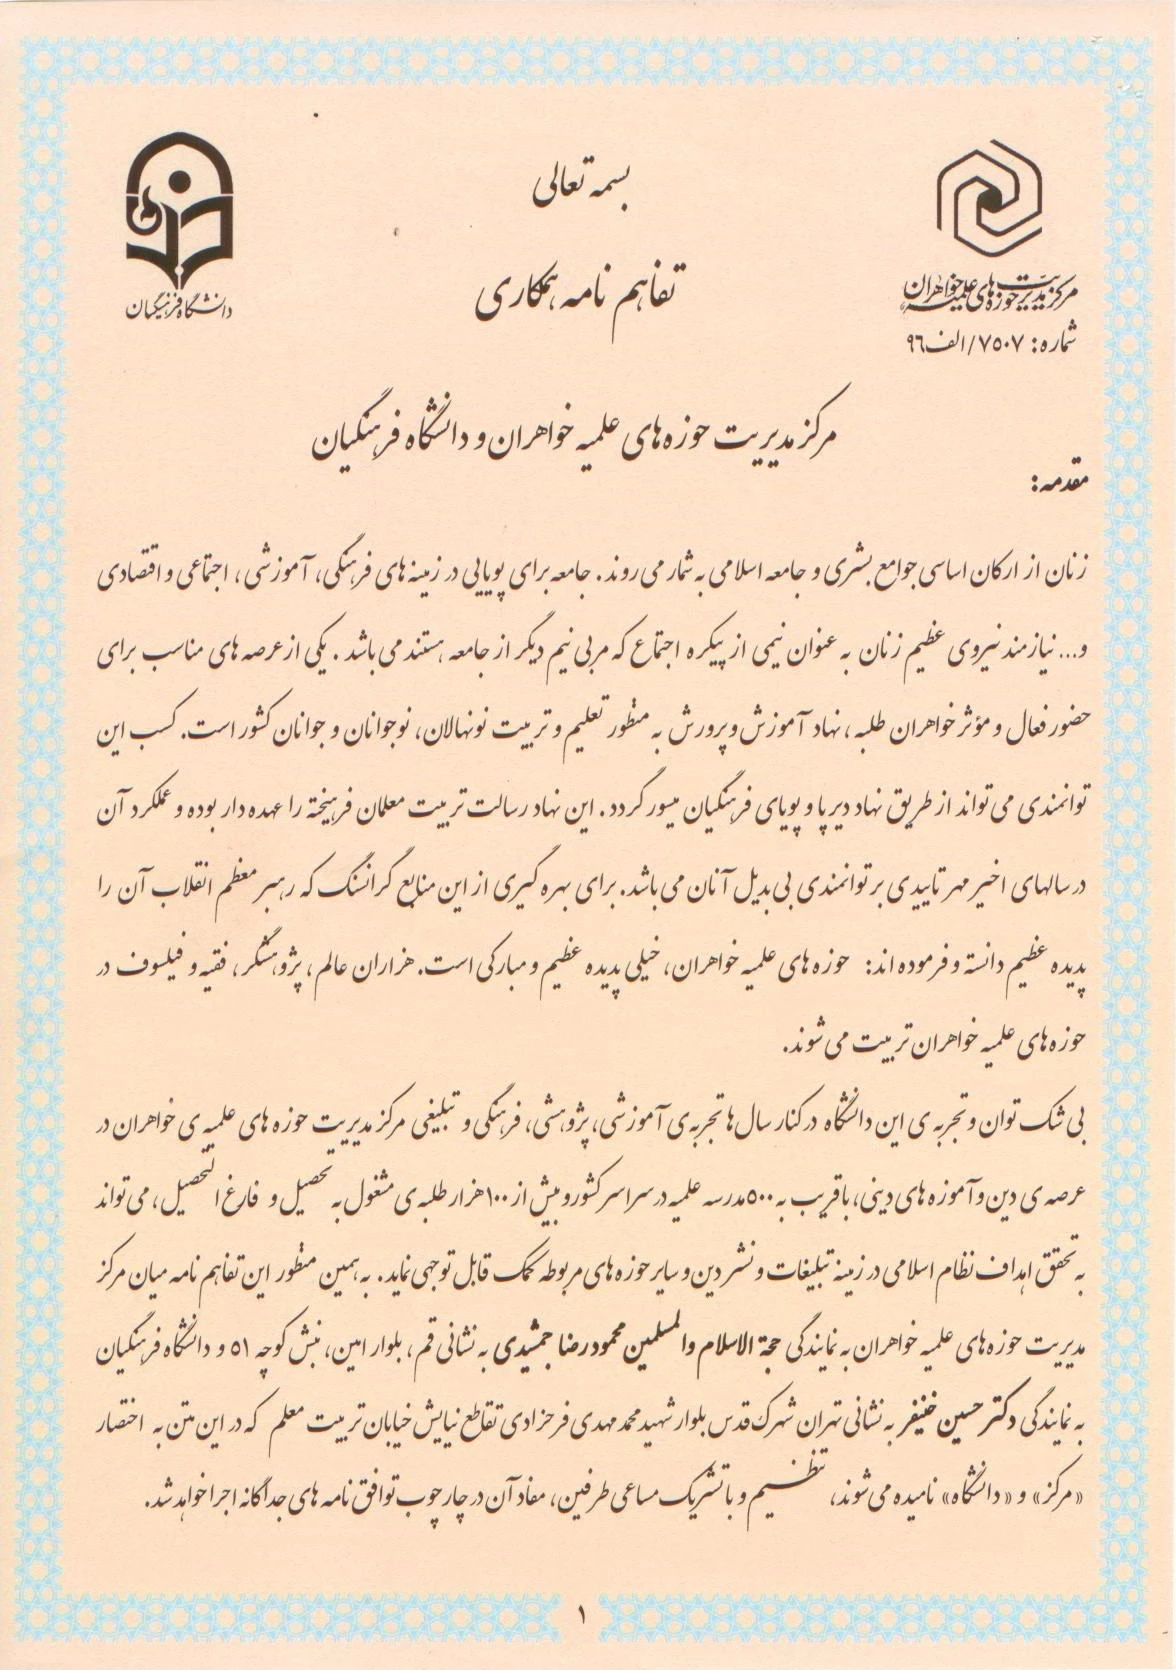 بسمه تعالی
تفاهم نامه همکاری
مرکز مدیریت حوزه های علمیه خواهران
شماره: ۷۵۰۷/الف۹۶
دانشگاه فرهنگیان
مرکز مدیریت حوزه های علمیه خواهران و دانشگاه فرهنگیان
مقدمه:
زنان از ارکان اساسی جوامع بشری و جامعه اسلامی به شمار می روند. جامعه برای پویایی در زمینه های فرهنگی، آموزشی، اجتماعی و اقتصادی
و... نیازمند نیروی عظیم زنان به عنوان نیمی از پیکره اجتماع که مربی نیم دیگر از جامعه هستند می باشد. یکی از عرصه های مناسب برای
حضور فعال و مؤثر خواهران طلبه، نهاد آموزش و پرورش به منظور تعلیم و تربیت نونهالان، نوجوانان و جوانان کشور است. کسب این
توانمندی می تواند از طریق نهاد دیرپا و پویای فرهنگیان میسور گردد. این نهاد رسالت تربیت معلمان فرهیخته را عهده دار بوده و عملکرد آن
در سالهای اخیر مهر تاییدی بر توانمندی بی بدیل آنان می باشد. برای بهره گیری از این منابع گرانسنگ که رهبر معظم انقلاب آن را
پدیده عظیم دانسته و فرموده اند: حوزه های علمیه خواهران، خیلی پدیده عظیم و مبارکی است. هزاران عالم، پژوهشگر، فقیه و فیلسوف در
حوزه های علمیه خواهران تربیت می شوند.
بی شک توان و تجربه ی این دانشگاه در کنار سال ها تجربه ی آموزشی، پژوهشی، فرهنگی و تبلیغی مرکز مدیریت حوزه های علمیه ی خواهران در
عرصه ی دین و آموزه های دینی، با قریب به ۵۰۰ مدرسه علمیه در سراسر کشور و بیش از ۱۰۰ هزار طلبه ی مشغول به تحصیل و فارغ التحصیل، می تواند
به تحقق اهداف نظام اسلامی در زمینه تبلیغات و نشر دین و سایر حوزه های مربوطه کمک قابل توجهی نماید. به همین منظور این تفاهم نامه میان مرکز
مدیریت حوزه های علمیه خواهران به نمایندگی حجة الاسلام والمسلمین محمود رضا جمشیدی به نشانی قم، بلوار امین، نبش کوچه ۵۱ و دانشگاه فرهنگیان
به نمایندگی دکتر حسین خنیفر به نشانی تهران شهرک قدس بلوار شهید محمد مهدی فرحزادی تقاطع نیایش خیابان تربیت معلم که در این متن به اختصار
«مرکز» و «دانشگاه» نامیده می شوند، تنظیم و با تشریک مساعی طرفین، مفاد آن در چارچوب توافق نامه های جداگانه اجرا خواهد شد.
۱